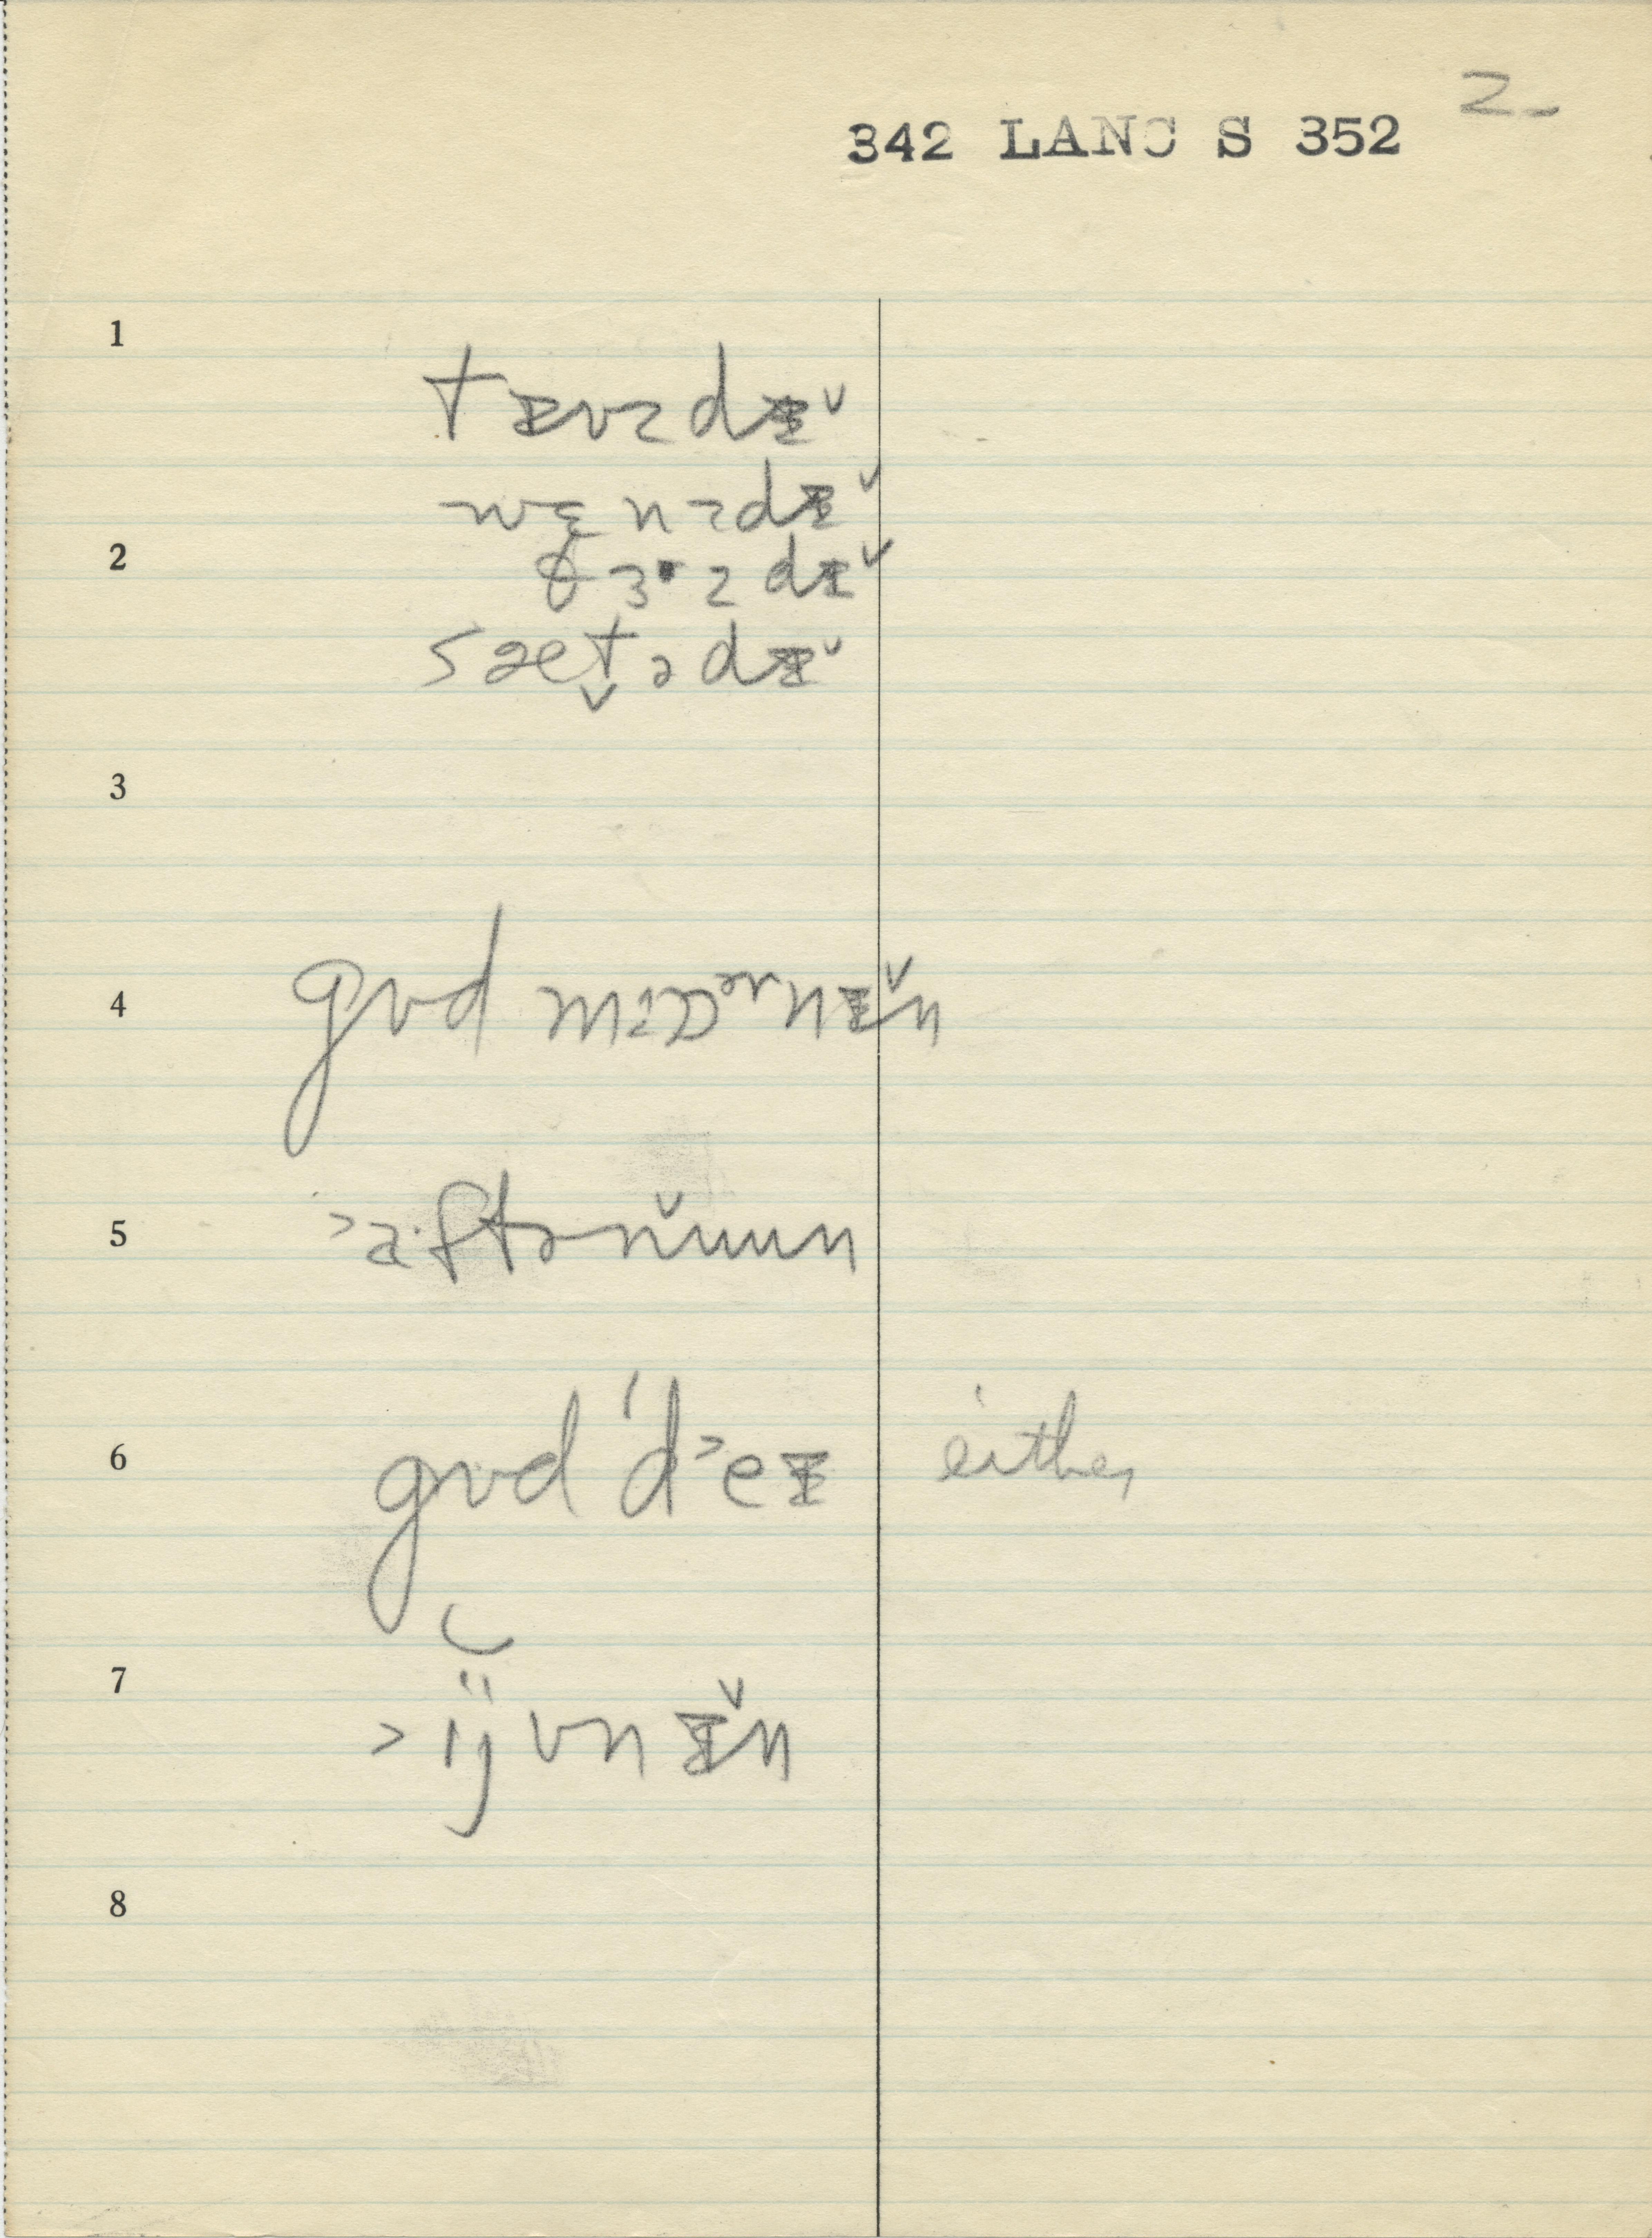 2-
342 LANC S 352
1
tɪʊzdɪ̌
wɛ̨nzdɪ̌
2
θɜ·zdɪ̌
sæt̬ədɪ̌
3
4 gʊd mɔᵊʳnɪ̌n
5 ˃a·ftənʉ̌ʉn
6 gʊd ˈd˃eɪ either
7 ˃ijvnɪ̌n
8